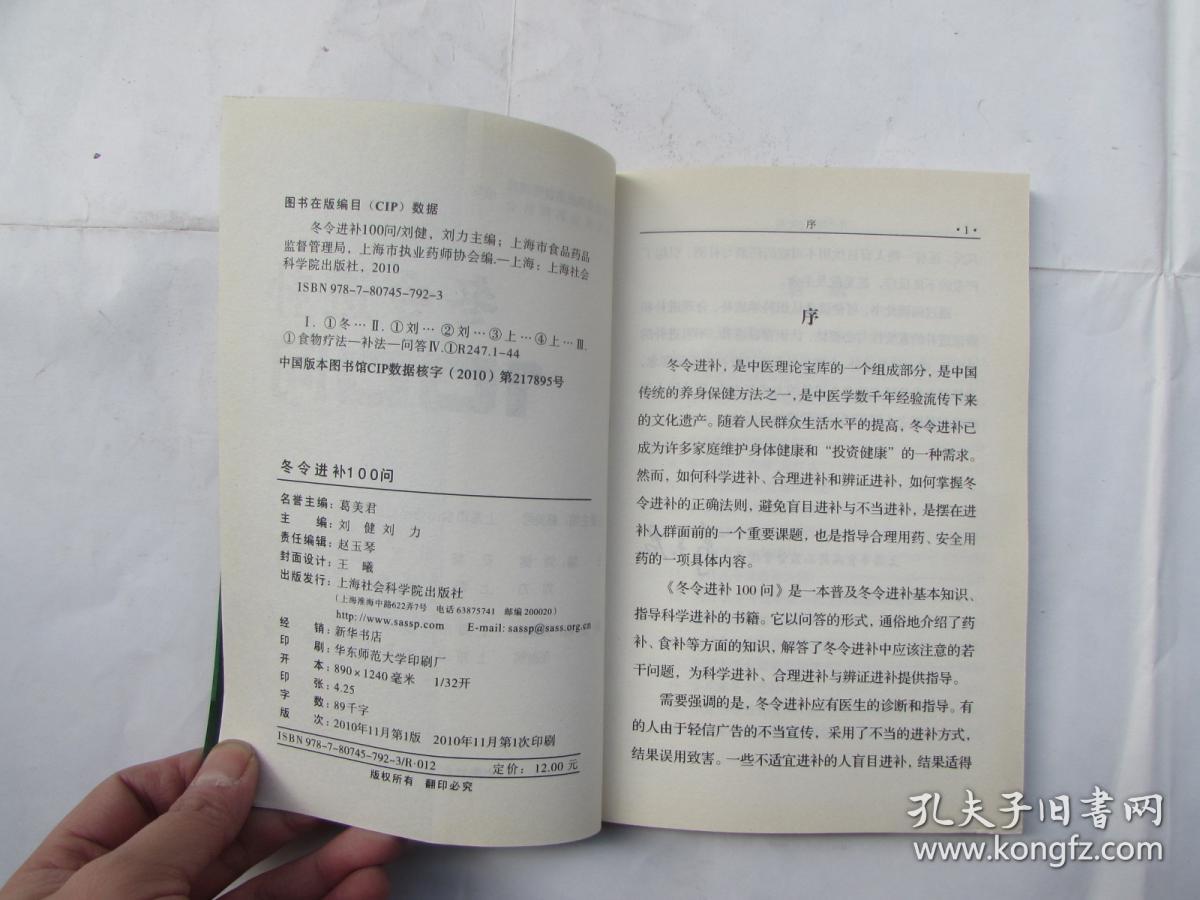 图书在版编目（CIP）数据
冬令进补100问/刘健，刘力主编；上海市食品药品
监督管理局，上海市执业药师协会编.—上海：上海社会
科学院出版社，2010
ISBN 978-7-80745-792-3
Ⅰ.①冬… Ⅱ.①刘…②刘…③上…④上… Ⅲ.
①食物疗法—补法—问答 Ⅳ.①R247.1-44
中国版本图书馆CIP数据核字（2010）第217895号
冬令进补100问
名誉主编：葛美君
主 编：刘 健 刘 力
责任编辑：赵玉琴
封面设计：王 曦
出版发行：上海社会科学院出版社
（上海淮海中路622弄7号 电话 63875741 邮编 200020）
http://www.sassp.com E-mail: sassp@sass.org.cn
经 销：新华书店
印 刷：华东师范大学印刷厂
开 本：890×1240 毫米 1/32开
印 张：4.25
字 数：89千字
版 次：2010年11月第1版 2010年11月第1次印刷
ISBN 978-7-80745-792-3/R·012 定价：12.00 元
版权所有 翻印必究
序 ·1·
序
冬令进补，是中医理论宝库的一个组成部分，是中国
传统的养身保健方法之一，是中医学数千年经验流传下来
的文化遗产。随着人民群众生活水平的提高，冬令进补已
成为许多家庭维护身体健康和“投资健康”的一种需求。
然而，如何科学进补、合理进补和辨证进补，如何掌握冬
令进补的正确法则，避免盲目进补与不当进补，是摆在进
补人群面前的一个重要课题，也是指导合理用药、安全用
药的一项具体内容。
《冬令进补 100 问》是一本普及冬令进补基本知识、
指导科学进补的书籍。它以问答的形式，通俗地介绍了药
补、食补等方面的知识，解答了冬令进补中应该注意的若
干问题，为科学进补、合理进补与辨证进补提供指导。
需要强调的是，冬令进补应有医生的诊断和指导。有
的人由于轻信广告的不当宣传，采用了不当的进补方式，
结果误用致害。一些不适宜进补的人盲目进补，结果适得
孔夫子旧书网
www.kongfz.com